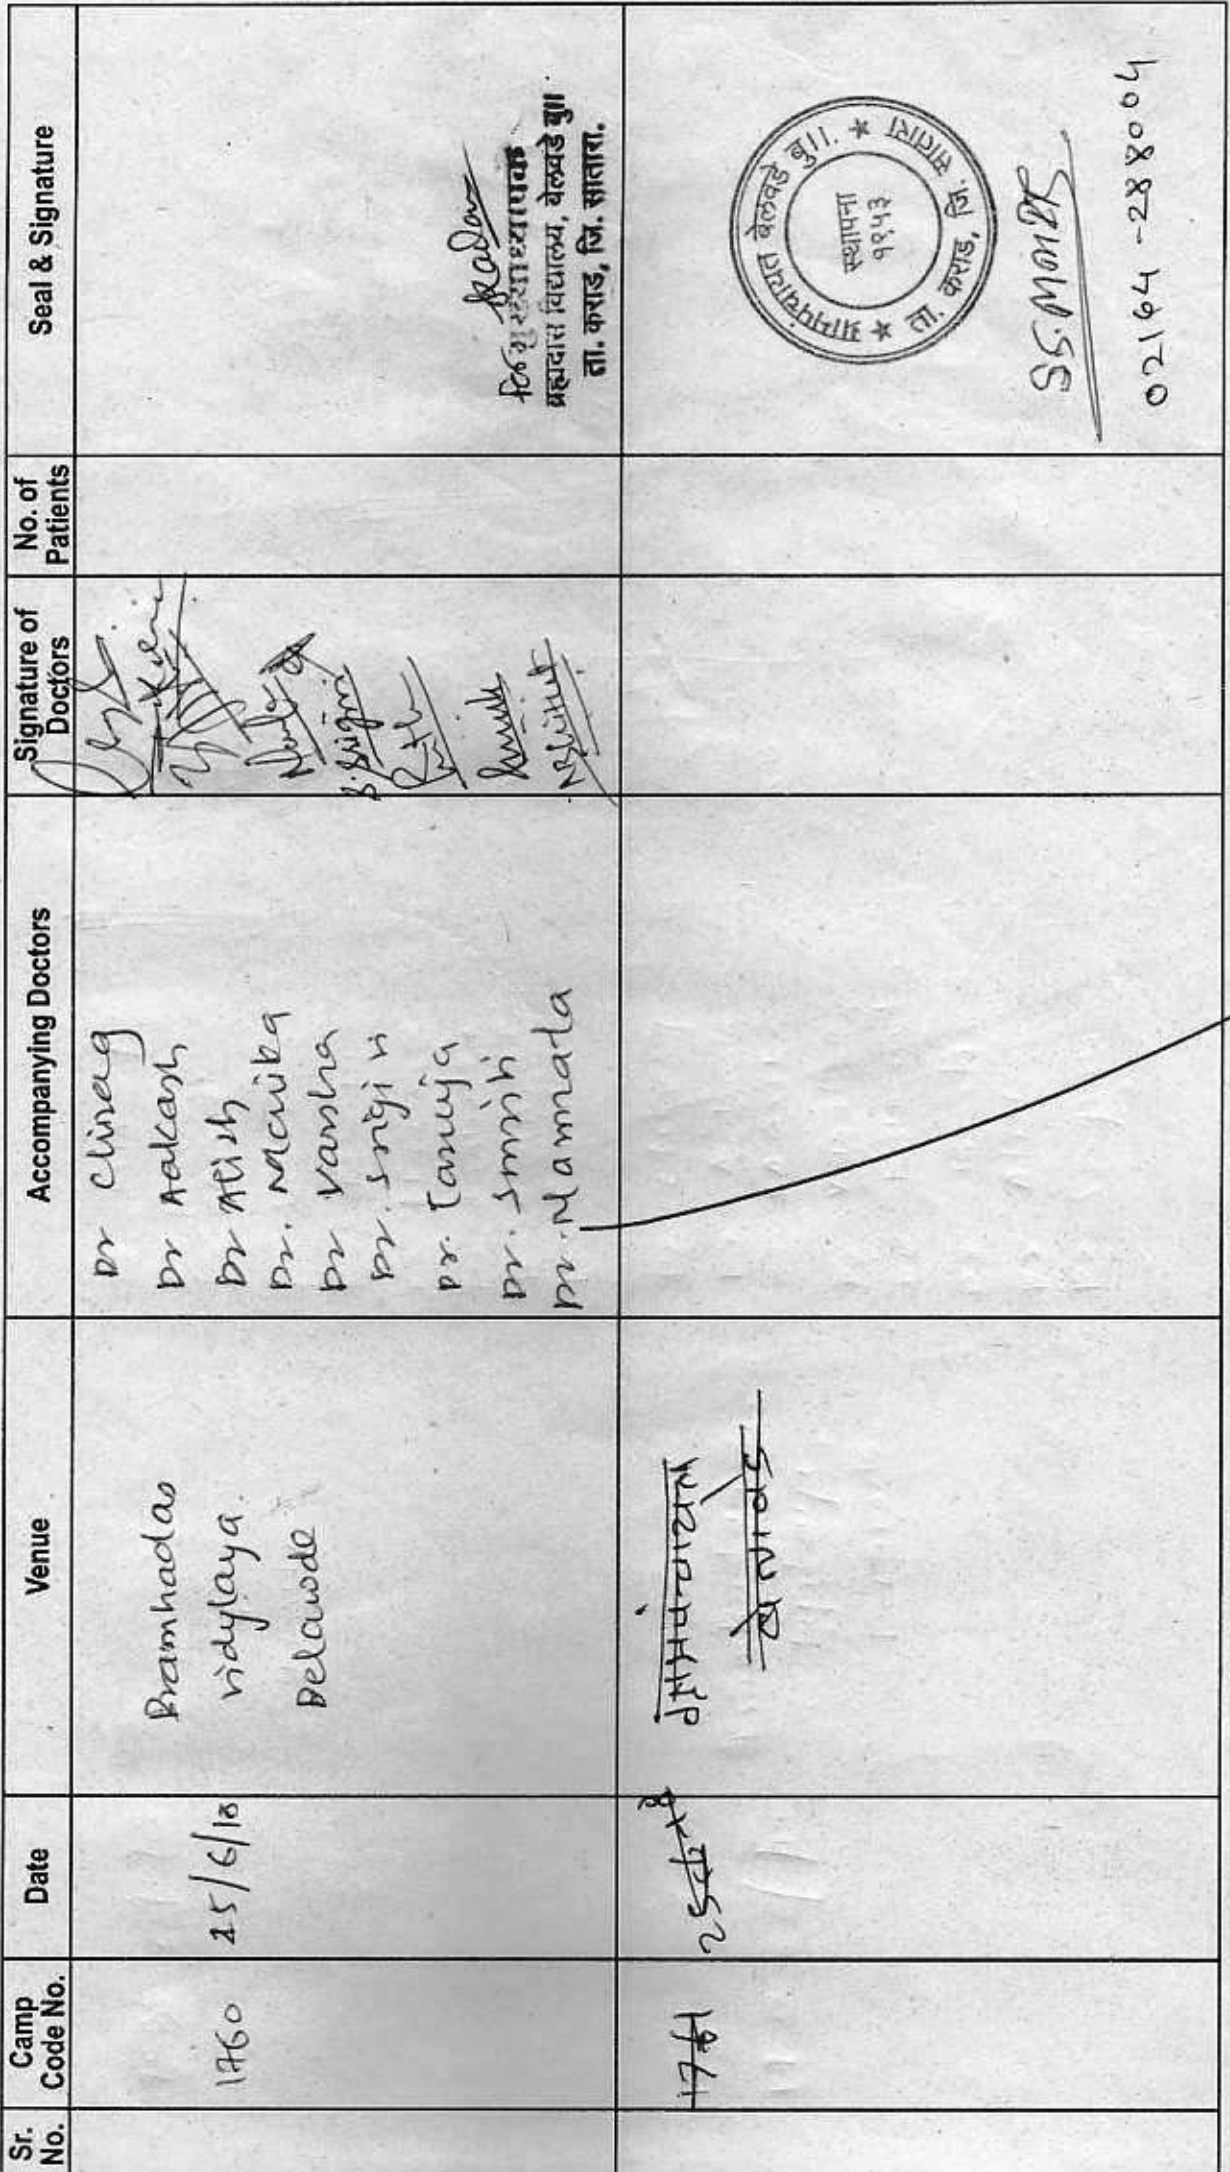 Sr. No.
Camp Code No.
Date
Venue
Accompanying Doctors
Signature of Doctors
No. of Patients
Seal & Signature
1760
25/6/18
Bramhadas
vidylaya
Belawde
Dr Chirag
Dr Aakash
Dr Alish
Dr. Monika
Dr Varsha
Dr. Srigin
Dr. Tanuja
Dr. Smriti
Dr. Namrata
Kadam
ब्रह्मदास विद्यालय, बेलवडे बु॥
ता. कराड, जि. सातारा.
1761
ग्रामपंचायत बेलवडे बु॥. ★ ता. कराड, जि. सातारा ★
स्थापना
१९५३
02164-288004